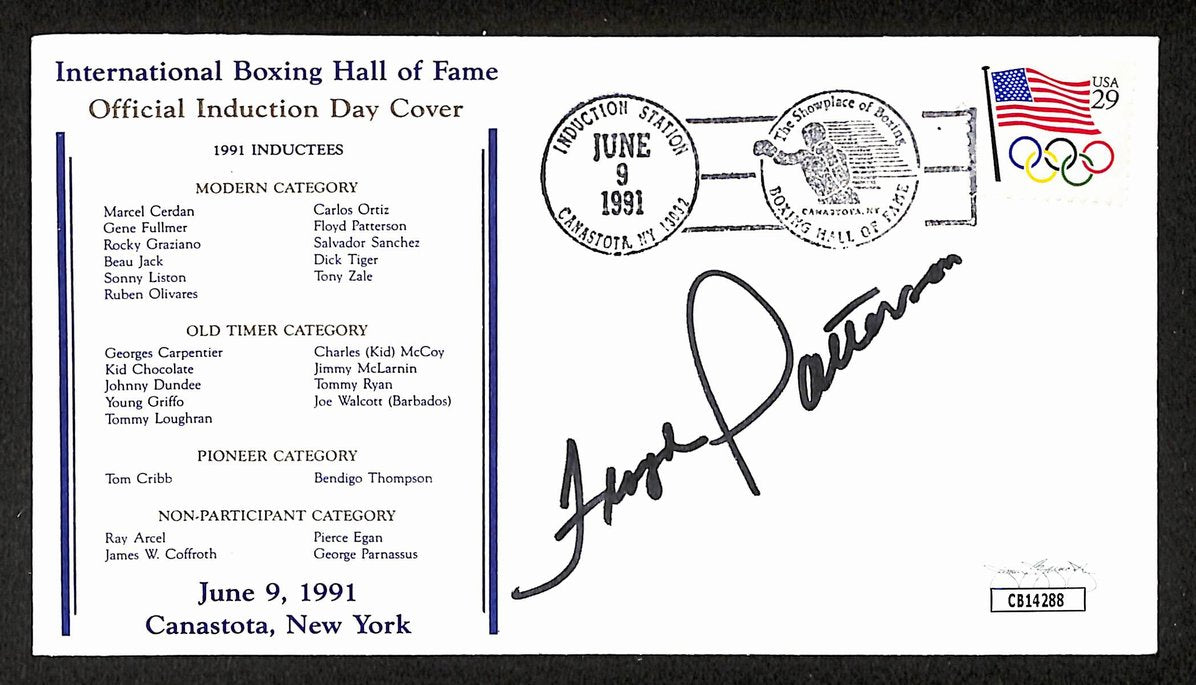 International Boxing Hall of Fame
Official Induction Day Cover
1991 INDUCTEES
MODERN CATEGORY
Marcel Cerdan
Gene Fullmer
Rocky Graziano
Beau Jack
Sonny Liston
Ruben Olivares
Carlos Ortiz
Floyd Patterson
Salvador Sanchez
Dick Tiger
Tony Zale
OLD TIMER CATEGORY
Georges Carpentier
Kid Chocolate
Johnny Dundee
Young Griffo
Tommy Loughran
Charles (Kid) McCoy
Jimmy McLarnin
Tommy Ryan
Joe Walcott (Barbados)
PIONEER CATEGORY
Tom Cribb
Bendigo Thompson
NON-PARTICIPANT CATEGORY
Ray Arcel
James W. Coffroth
Pierce Egan
George Parnassus
June 9, 1991
Canastota, New York
INDUCTION STATION
JUNE
9
1991
CANASTOTA, NY 13032
The Showplace of Boxing
CANASTOTA, NY
BOXING HALL OF FAME
USA
29
Floyd Patterson
CB14288